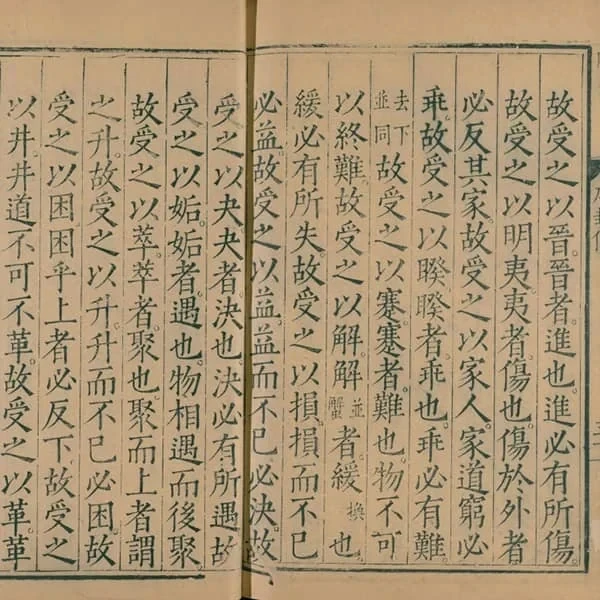 故受之以晉。晉者。進也。進必有所傷。
故受之以明夷。夷者。傷也。傷於外者
必反其家。故受之以家人。家道窮必
乖。故受之以睽。睽者。乖也。乖必有難。
去下並同故受之以蹇。蹇者。難也。物不可
以終難。故受之以解。解並蟹者。緩換也
緩必有所失。故受之以損。損而不已
必益。故受之以益。益而不已必決。故
受之以夬。夬者。決也。決必有所遇。故
受之以姤。姤者。遇也。物相遇而後聚。
故受之以萃。萃者。聚也。聚而上者謂
之升。故受之以升。升而不已必困。故
受之以困。困乎上者必反下。故受之
以井。井道不可不革。故受之以革。革